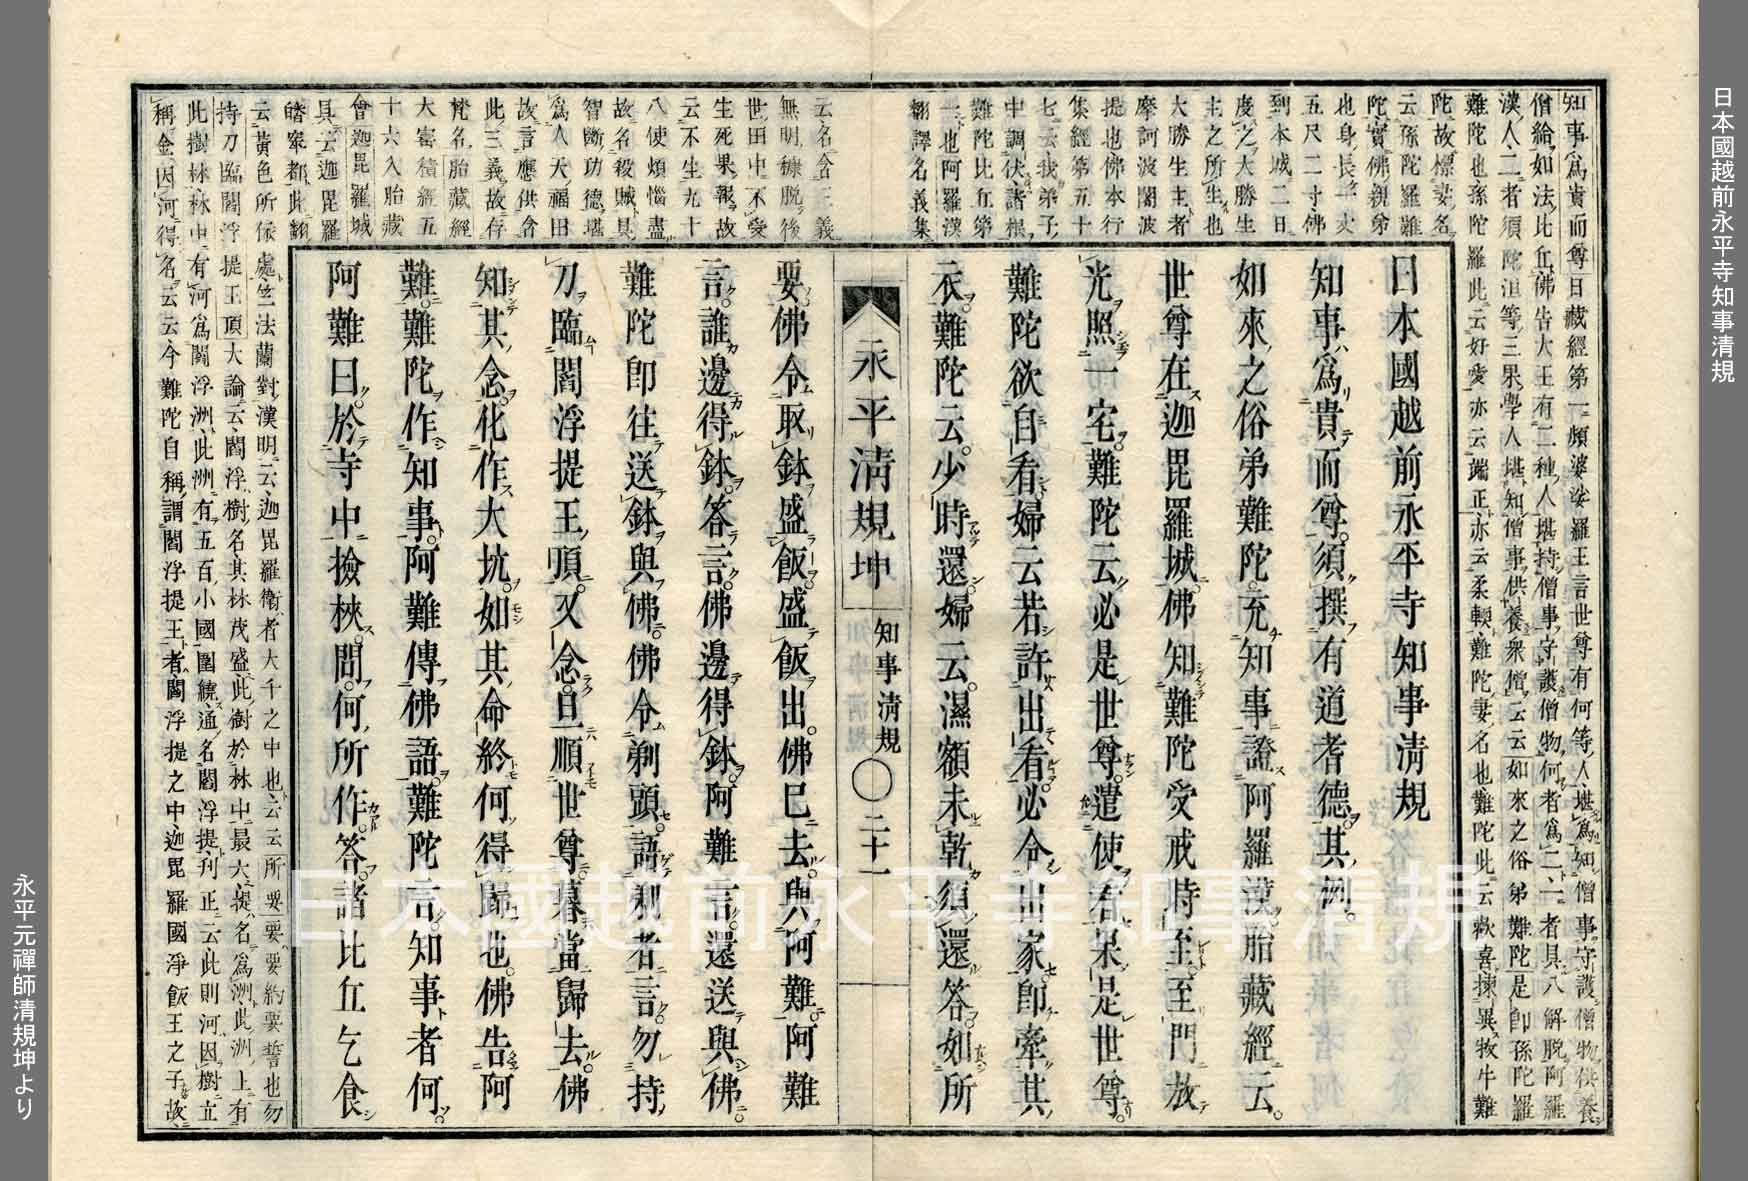 日本國越前永平寺知事清規
日本國越前永平寺知事清規
知事爲貴而尊須撰有道耆德其例
如來之俗弟難陀充知事證阿羅漢胎藏經云
世尊在迦毘羅城佛知難陀受戒時至至門放
光照一宅難陀云必是世尊遣使看果是世尊
難陀欲自看婦云若許出看必令出家即牽其
衣難陀云少時還婦云濕額未乾須還答如所
永平清規坤
知事清規〇二十一
要佛令取鉢盛飯盛飯出佛已去與阿難阿難
言誰邊得鉢答言佛邊得鉢阿難言還送與佛
難陀即往送鉢與佛佛令剃頭語剃者言勿持
刀臨閻浮提王頂又念旦順世尊暮當歸去佛
知其念化作大坑如其命終何得歸也佛告阿
難難陀作知事阿難傳佛語難陀言知事者何
阿難曰於寺中撿校問何所作答諸比丘乞食
知事爲貴而尊日藏經第一頻婆娑羅王言世尊有何等人堪爲知僧事守護僧物供養
僧給如法比丘佛告大王有二種人堪持僧事守護僧物何者爲二一者具八解脱阿羅
漢人二者須陀洹等三果學人堪知僧事供養衆僧云云如來之俗弟難陀是即孫陀羅
難陀也孫陀羅此云好愛亦云端正亦云柔輭難陀妻名也難陀此云歡喜揀異牧牛難
陀故標妻名
云孫陀羅難
陀實佛親弟
也身長一丈
五尺二寸佛
到本城二日
度之大勝生
主之所生也
大勝生主者
摩訶波闍波
提也佛本行
集經第五十
七云我弟子
中調伏諸根
難陀比丘第
一也阿羅漢
翻譯名義集
云名含三義
無明糠脱後
世田中不受
生死果報故
云不生九十
八使煩惱盡
故名殺賊具
智斷功德堪
爲人天福田
故言應供含
此三義故存
梵名胎藏經
大寶積經五
十六入胎藏
會迦毘羅城
具云迦毘羅
皤窣都此翻
云黃色所依處竺法蘭對漢明云迦毘羅衛者大千之中也云云所要要要約要誓也勿
持刀臨閻浮提王頂大論云閻浮樹名其林茂盛此樹於林中最大提名爲洲此洲上有
此樹林林中有河爲閻浮洲此洲有五百小國圍繞通名閻浮提刊正云此則河因樹立
稱金因河得名云云今難陀自稱謂閻浮提王者閻浮提之中迦毘羅國淨飯王之子故
日本國越前永平寺知事清規
永平元禪師清規坤より